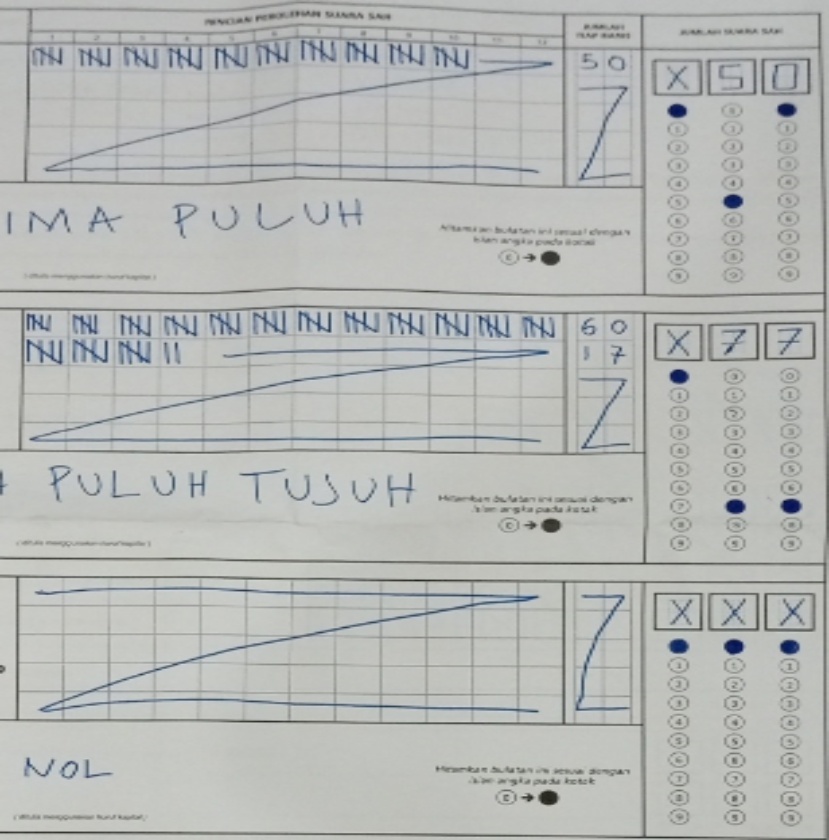 RINCIAN PEROLEHAN SUARA SAH
JUMLAH
TIAP BARIS
JUMLAH SUARA SAH
1 2 3 4 5 6 7 8 9 10 11 12
50
X 5 0
IMA PULUH
Hitamkan bulatan ini sesuai dengan
isian angka pada kotak
0 1 2 3 4 5 6 7 8 9
(ditulis menggunakan huruf kapital)
60
17
X 7 7
PULUH TUJUH
Hitamkan bulatan ini sesuai dengan
isian angka pada kotak
0 1 2 3 4 5 6 7 8 9
(ditulis menggunakan huruf kapital)
X X X
NOL
Hitamkan bulatan ini sesuai dengan
isian angka pada kotak
1 2 3 4 5 6 7 8 9
(ditulis menggunakan huruf kapital)